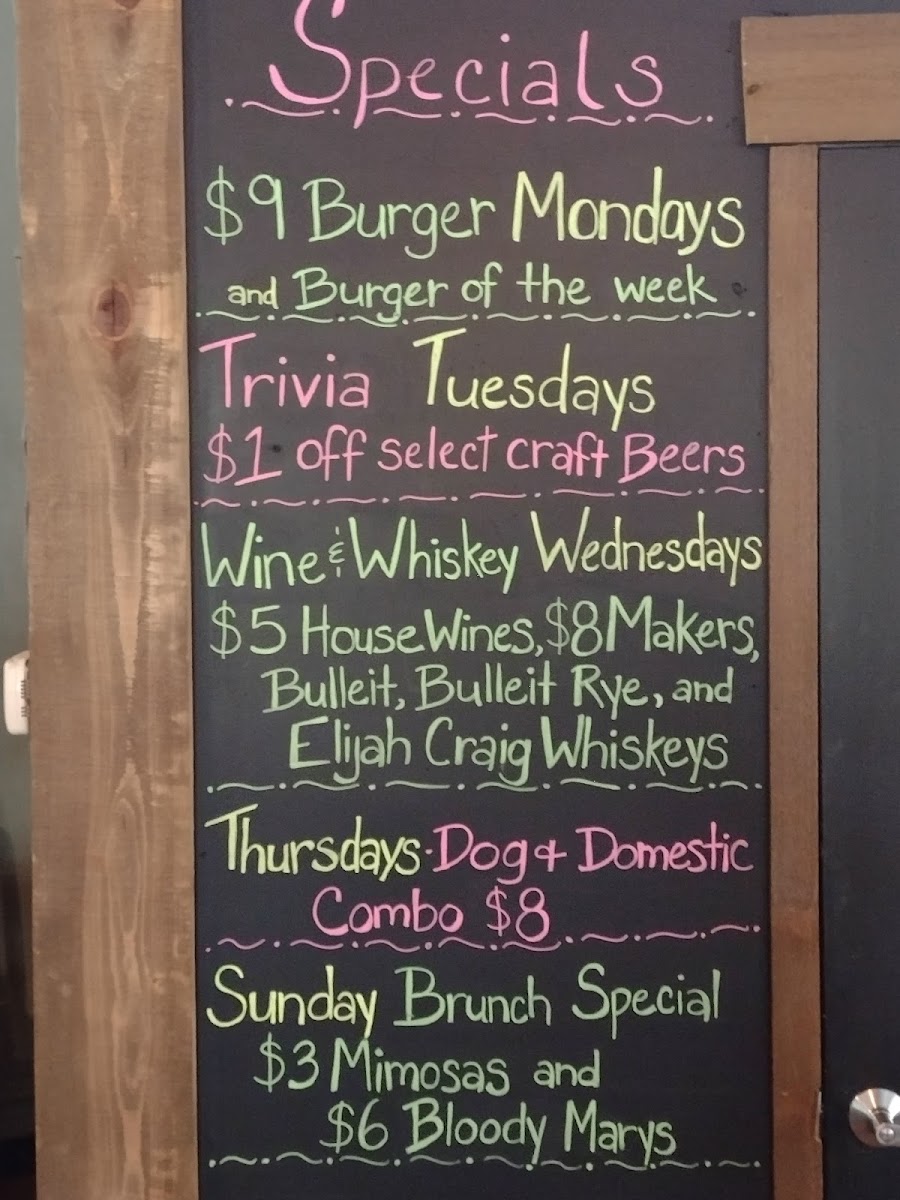 Specials
$9 Burger Mondays
and Burger of the week
Trivia Tuesdays
$1 off select craft Beers
Wine & Whiskey Wednesdays
$5 House Wines, $8 Makers,
Bulleit, Bulleit Rye, and
Elijah Craig Whiskeys
Thursdays · Dog + Domestic
Combo $8
Sunday Brunch Special
$3 Mimosas and
$6 Bloody Marys